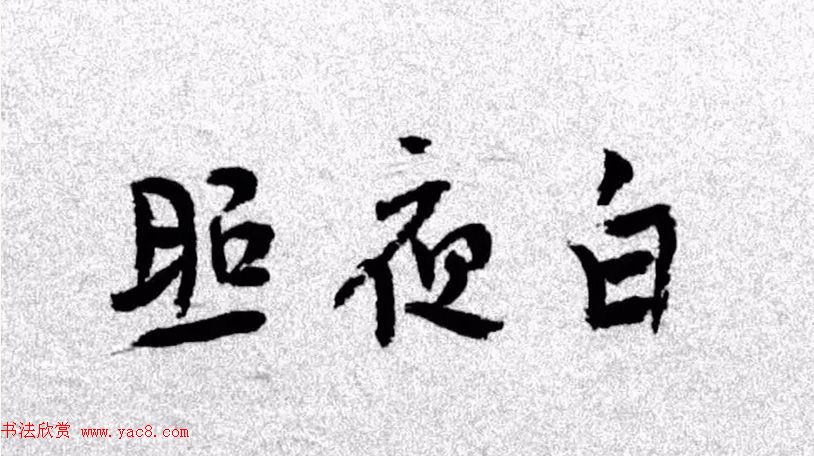 照夜白
书法欣赏 www.yac8.com